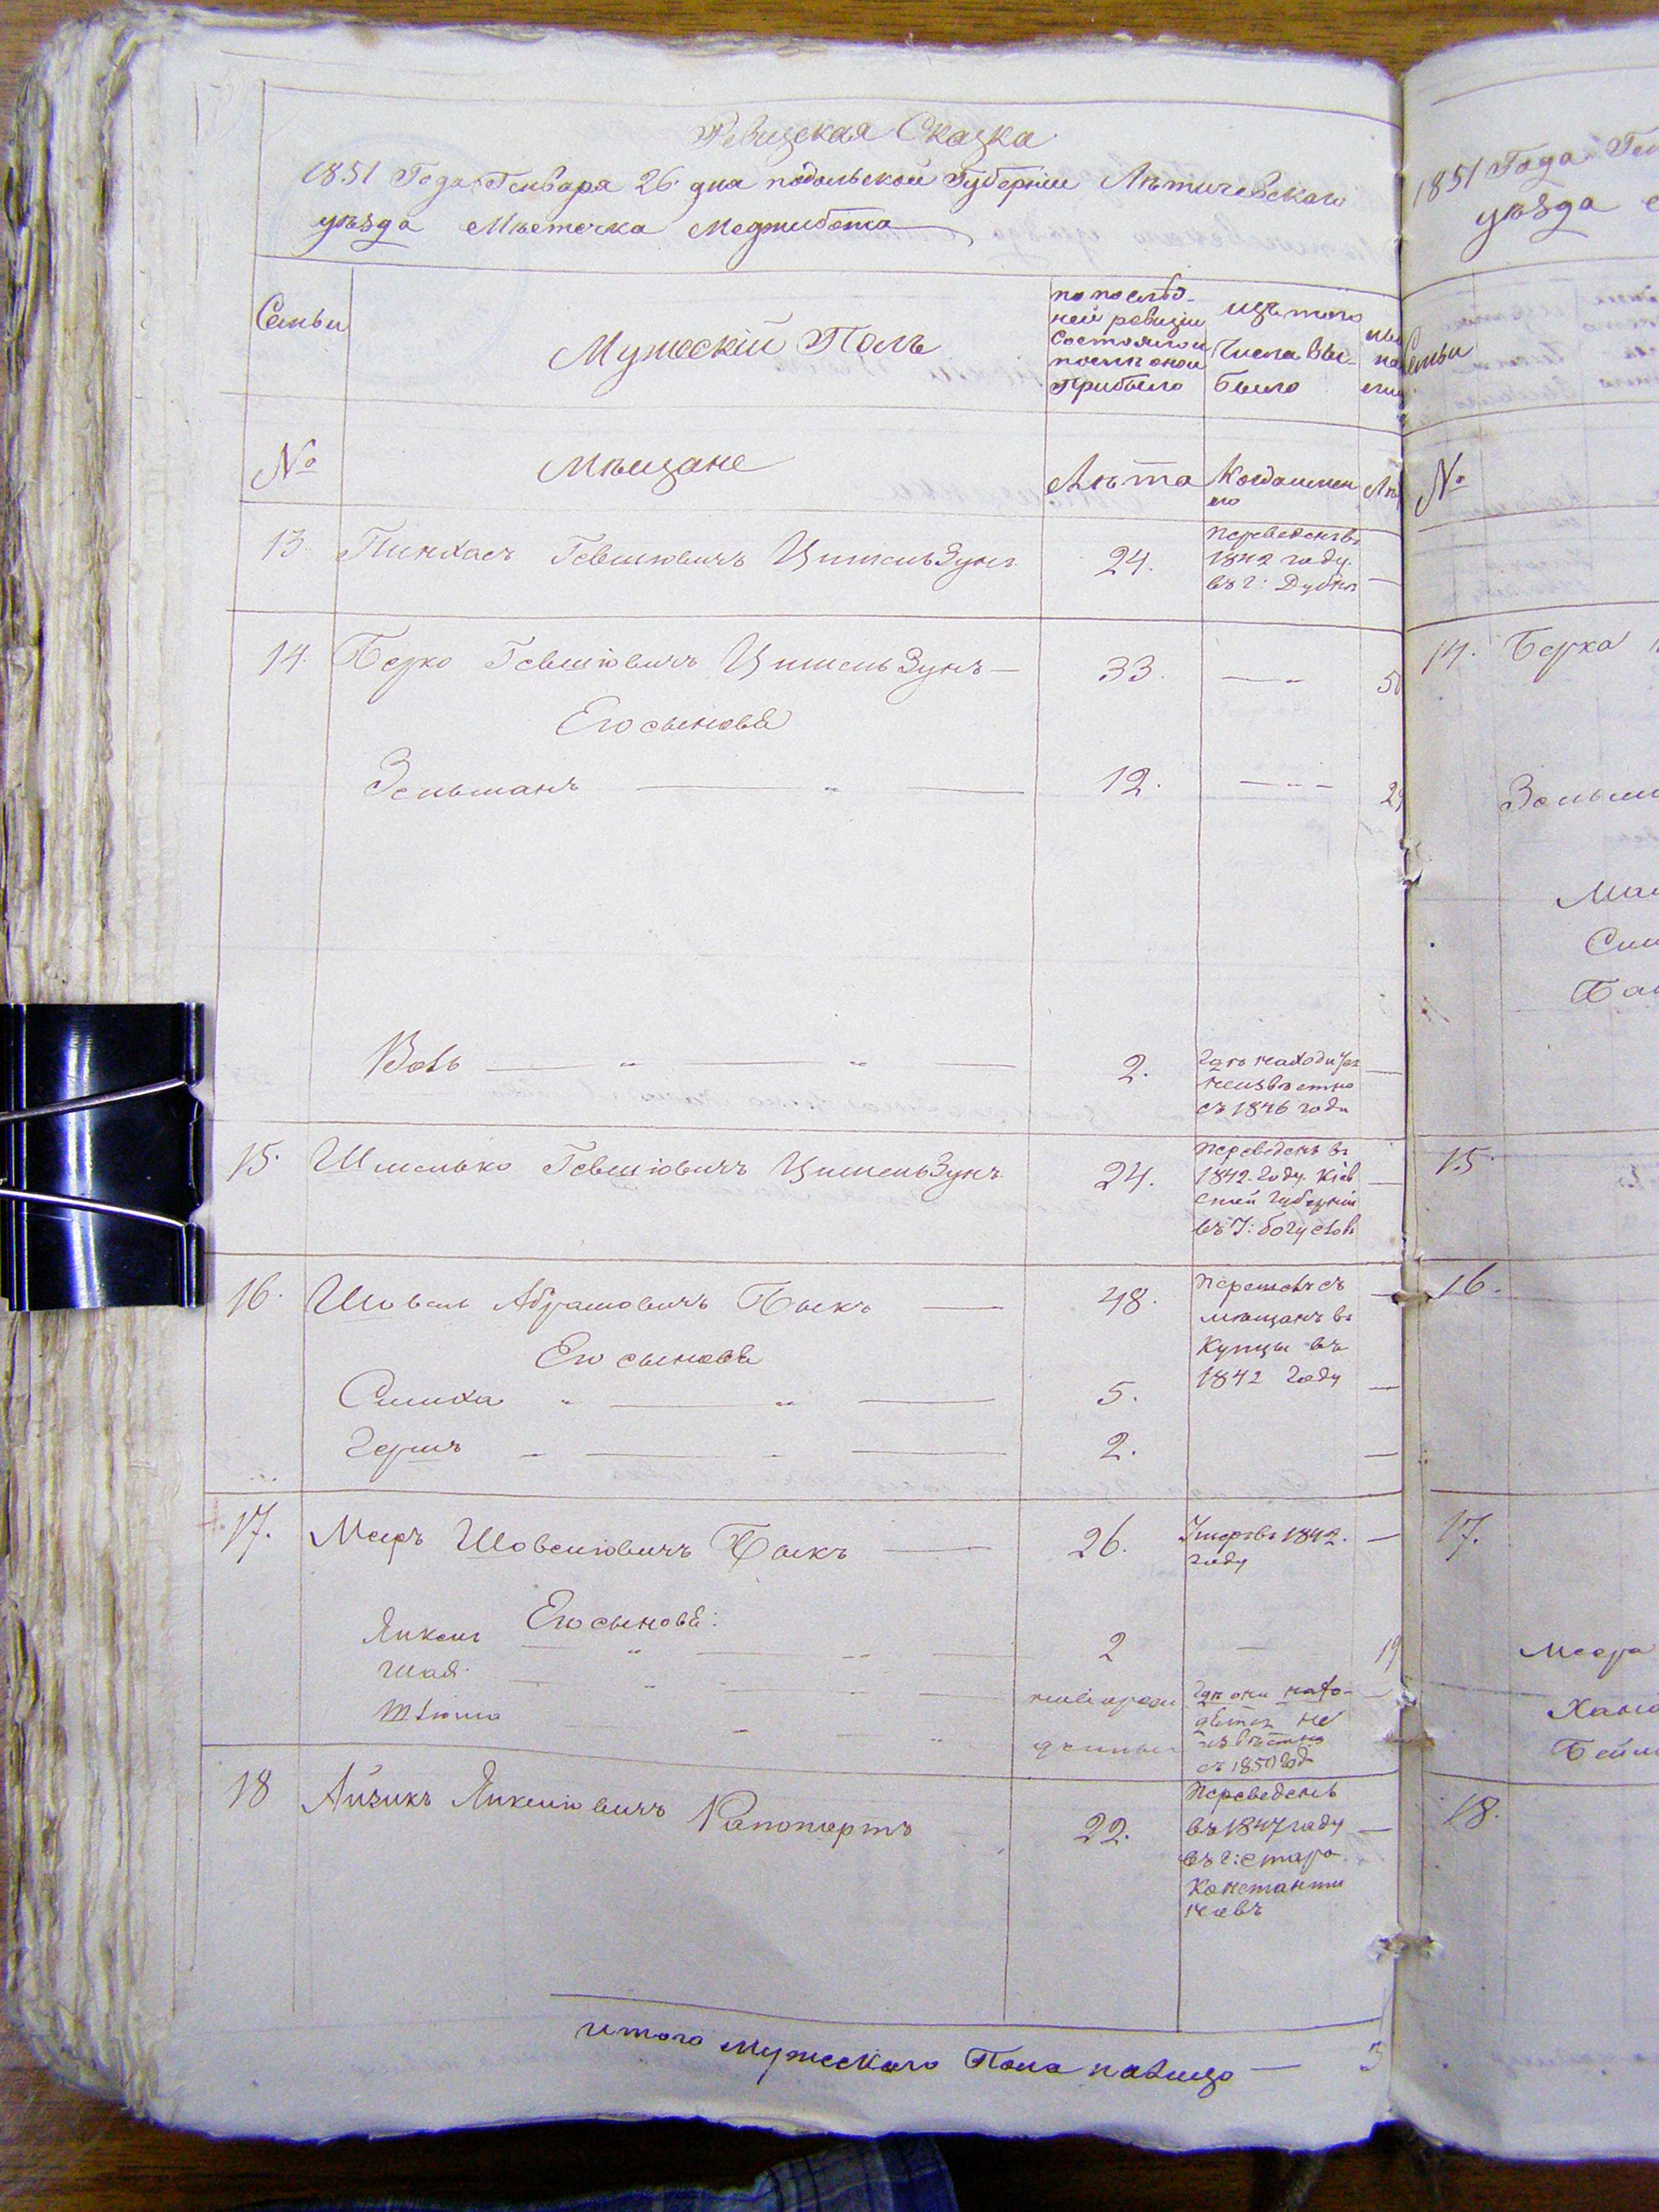 Ревизская Сказка
1851 Года Генваря 26 дня подольской Губерніи Лѣтичевскаго
уѣзда Мѣстечка Меджибожа
Семьи
Мужескій Полъ
по послѣд-
ней ревизіи
состояло и
послѣ оной
прибыло
изъ того
числа вы-
было
№
Мѣщане
Лѣта
Когда имен
но
13. Пинхасъ Гевшіовичъ Цимельзунъ 24.
Переведенъ въ
1842 году
въ г: Дубно
14. Берко Гевшіовичъ Цимельзунъ 33.
Его сыновья
Зельманъ 12.
Вовъ 2.
Гдѣ находится
неизвѣстно
съ 1846 года
15. Шмелько Гевшіовичъ Цимельзунъ 24.
Переведенъ въ
1842 году Кіев
ской губерніи
въ г: богуславъ
16. Шовель Абрамовичъ Быкъ 48.
Перешелъ съ
мѣщанъ въ
купцы въ
1842 году
Его сыновья
Симха 5.
Гершъ 2.
17. Мееръ Шовеліовичъ Быкъ 26.
Умеръ въ 1842.
году
Его сыновья:
Янкель 2 19
Шая
новорож
денные
Гдѣ они нахо-
дятся не
извѣстно
съ 1850 год
18 Айзикъ Янкеліовичъ Рапопортъ 22.
Переведенъ
въ 1847 году
въ г: старо
Константи
новъ
итого Мужескаго Пола налицо
1851 Года Ген
уѣзда
Семьи
№
14. Берка
15
16.
17.
Меера
18.